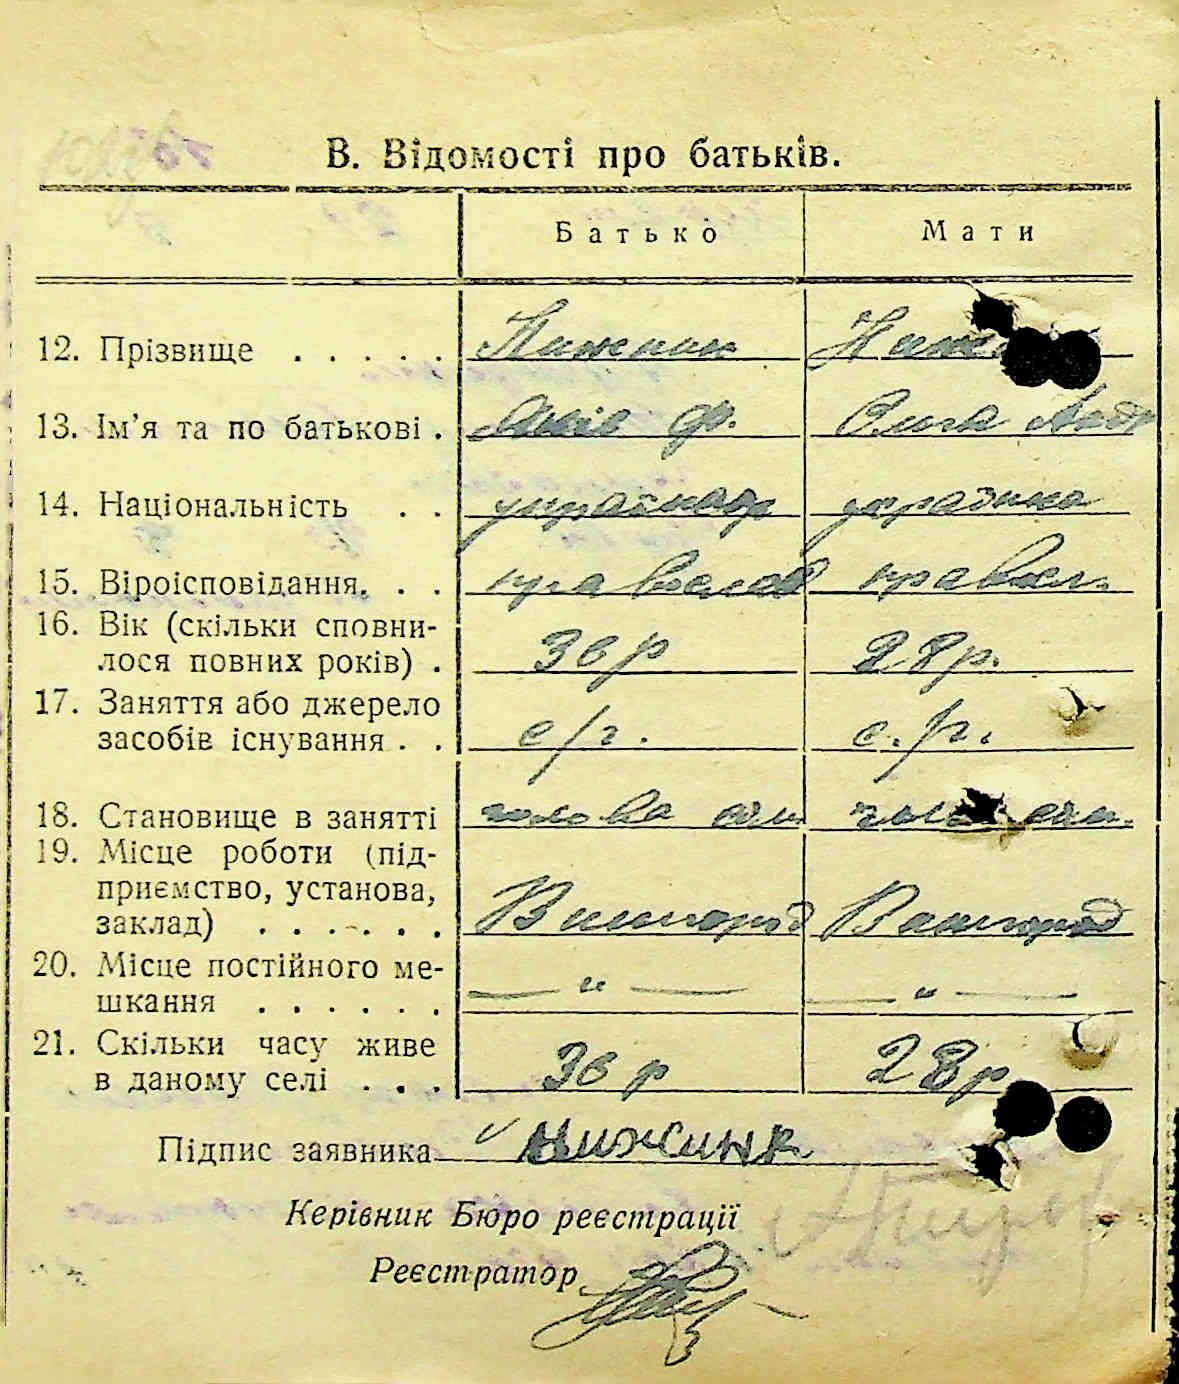 В. Відомості про батьків.
Батько Мати
12. Прізвище . . . . . Нижник Ниж
13. Ім’я та по батькові . Яків Ф. Ольга Андр
14. Національність . . українец українка
15. Віроісповідання. . . православ правосл.
16. Вік (скільки сповни-
лося повних років) . 36 р 28 р.
17. Заняття або джерело
засобів існування . . с/г. с./г.
18. Становище в занятті голова сім член сім.
19. Місце роботи (під-
приємство, установа,
заклад) . . . . . . Вишгород Вишгород
20. Місце постійного ме-
шкання . . . . . . — „ — — „ —
21. Скільки часу живе
в даному селі . . . 36 р 28 р
Підпис заявника Нижинк
Керівник Бюро реєстрації
Реєстратор